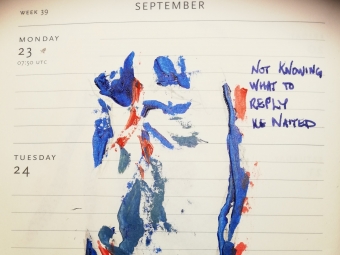 SEPTEMBER
WEEK 39
MONDAY
23
07:50 UTC
NOT KNOWING
WHAT TO
REPLY
HE WAITED
TUESDAY
24